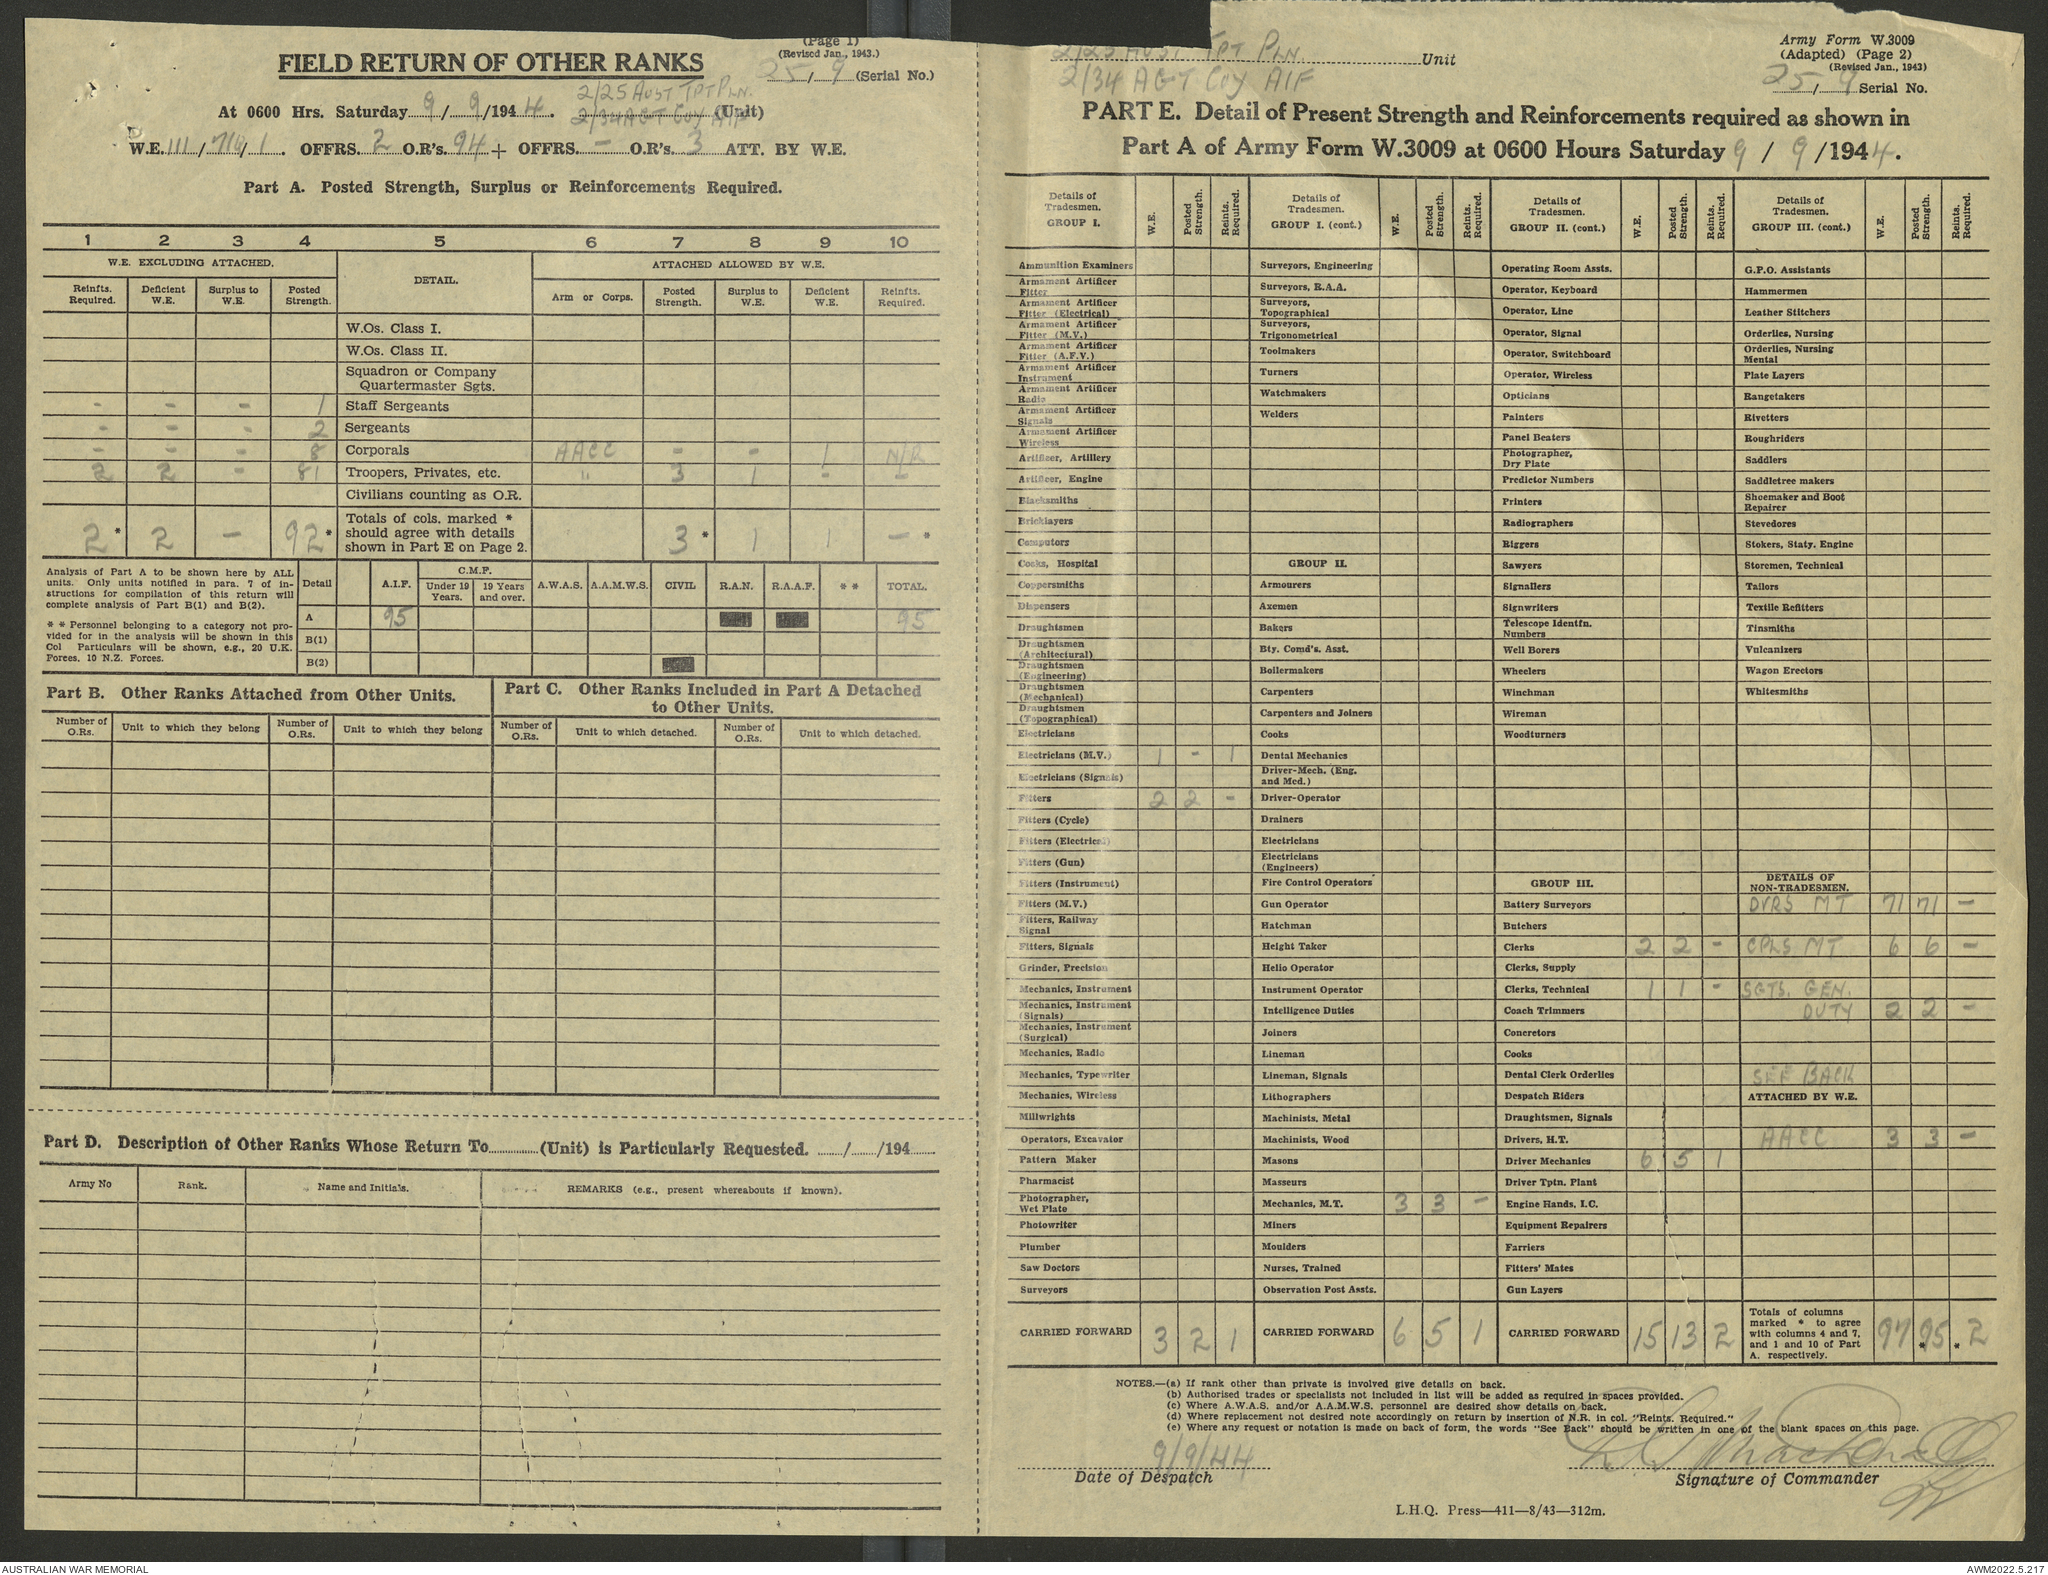 (Page 1)
(Revised Jan., 1943.)
FIELD RETURN OF OTHER RANKS
25/9 (Serial No.)
2/25 AUST TPT PLN.
At 0600 Hrs. Saturday 9/9/1944. 2/34 AGT COY AIF (Unit)
W.E. 111/710/1. OFFRS. 2 O.R's. 94 + OFFRS. - O.R's. 3 ATT. BY W.E.
Part A. Posted Strength, Surplus or Reinforcements Required.
1 2 3 4 5 6 7 8 9 10
W.E. EXCLUDING ATTACHED. DETAIL. ATTACHED ALLOWED BY W.E.
Reinfts. Required. Deficient W.E. Surplus to W.E. Posted Strength. Arm or Corps. Posted Strength. Surplus to W.E. Deficient W.E. Reinfts. Required.
W.Os. Class I.
W.Os. Class II.
Squadron or Company
Quartermaster Sgts.
- - - 1 Staff Sergeants
- - - 2 Sergeants
- - - 8 Corporals AACC - - 1 N/R
2 2 - 81 Troopers, Privates, etc. " 3 1 - -
Civilians counting as O.R.
Totals of cols. marked *
should agree with details
shown in Part E on Page 2.
2* 2 - 92* 3* 1 1 -*
Analysis of Part A to be shown here by ALL
units. Only units notified in para. 7 of in-
structions for compilation of this return will
complete analysis of Part B(1) and B(2).
* * Personnel belonging to a category not pro-
vided for in the analysis will be shown in this
Col Particulars will be shown, e.g., 20 U.K.
Forces, 10 N.Z. Forces.
Detail A.I.F. C.M.F. Under 19 Years. 19 Years and over. A.W.A.S. A.A.M.W.S. CIVIL R.A.N. R.A.A.F. * * TOTAL.
A 95 95
B(1)
B(2)
Part B. Other Ranks Attached from Other Units.
Number of O.Rs. Unit to which they belong Number of O.Rs. Unit to which they belong
Part C. Other Ranks Included in Part A Detached
to Other Units.
Number of O.Rs. Unit to which detached. Number of O.Rs. Unit to which detached.
Part D. Description of Other Ranks Whose Return To (Unit) is Particularly Requested. / /194
Army No Rank. Name and Initials. REMARKS (e.g., present whereabouts if known).
2/25 AUST TPT PLN. Unit
2/34 AGT COY AIF
Army Form W.3009
(Adapted) (Page 2)
(Revised Jan., 1943)
25/9 Serial No.
PART E. Detail of Present Strength and Reinforcements required as shown in
Part A of Army Form W.3009 at 0600 Hours Saturday 9/9/1944.
Details of Tradesmen. GROUP I. W.E. Posted Strength. Reints. Required.
Ammunition Examiners
Armament Artificer Fitter
Armament Artificer Fitter (Electrical)
Armament Artificer Fitter (M.V.)
Armament Artificer Fitter (A.F.V.)
Armament Artificer Instrument
Armament Artificer Radio
Armament Artificer Signals
Armament Artificer Wireless
Artificer, Artillery
Artificer, Engine
Blacksmiths
Bricklayers
Computors
Cooks, Hospital
Coppersmiths
Dispensers
Draughtsmen
Draughtsmen (Architectural)
Draughtsmen (Engineering)
Draughtsmen (Mechanical)
Draughtsmen (Topographical)
Electricians
Electricians (M.V.) 1 - 1
Electricians (Signals)
Fitters 2 2 -
Fitters (Cycle)
Fitters (Electrical)
Fitters (Gun)
Fitters (Instrument)
Fitters (M.V.)
Fitters, Railway Signal
Fitters, Signals
Grinder, Precision
Mechanics, Instrument
Mechanics, Instrument (Signals)
Mechanics, Instrument (Surgical)
Mechanics, Radio
Mechanics, Typewriter
Mechanics, Wireless
Millwrights
Operators, Excavator
Pattern Maker
Pharmacist
Photographer, Wet Plate
Photowriter
Plumber
Saw Doctors
Surveyors
CARRIED FORWARD 3 2 1
Details of Tradesmen. GROUP I. (cont.) W.E. Posted Strength. Reints. Required.
Surveyors, Engineering
Surveyors, R.A.A.
Surveyors, Topographical
Surveyors, Trigonometrical
Toolmakers
Turners
Watchmakers
Welders
GROUP II.
Armourers
Axemen
Bakers
Bty. Comd's. Asst.
Boilermakers
Carpenters
Carpenters and Joiners
Cooks
Dental Mechanics
Driver-Mech. (Eng. and Med.)
Driver-Operator
Drainers
Electricians
Electricians (Engineers)
Fire Control Operators
Gun Operator
Hatchman
Height Taker
Helio Operator
Instrument Operator
Intelligence Duties
Joiners
Lineman
Lineman, Signals
Lithographers
Machinists, Metal
Machinists, Wood
Masons
Masseurs
Mechanics, M.T. 3 3 -
Miners
Moulders
Nurses, Trained
Observation Post Assts.
CARRIED FORWARD 6 5 1
Details of Tradesmen. GROUP II. (cont.) W.E. Posted Strength. Reints. Required.
Operating Room Assts.
Operator, Keyboard
Operator, Line
Operator, Signal
Operator, Switchboard
Operator, Wireless
Opticians
Painters
Panel Beaters
Photographer, Dry Plate
Predictor Numbers
Printers
Radiographers
Riggers
Sawyers
Signallers
Signwriters
Telescope Identfn. Numbers
Well Borers
Wheelers
Winchman
Wireman
Woodturners
GROUP III.
Battery Surveyors
Butchers
Clerks 2 2 -
Clerks, Supply
Clerks, Technical 1 1 -
Coach Trimmers
Concretors
Cooks
Dental Clerk Orderlies
Despatch Riders
Draughtsmen, Signals
Drivers, H.T.
Driver Mechanics 6 5 1
Driver Tptn. Plant
Engine Hands, I.C.
Equipment Repairers
Farriers
Fitters' Mates
Gun Layers
CARRIED FORWARD 15 13 2
Details of Tradesmen. GROUP III. (cont.) W.E. Posted Strength. Reints. Required.
G.P.O. Assistants
Hammermen
Leather Stitchers
Orderlies, Nursing
Orderlies, Nursing Mental
Plate Layers
Rangetakers
Rivetters
Roughriders
Saddlers
Saddletree makers
Shoemaker and Boot Repairer
Stevedores
Stokers, Staty. Engine
Storemen, Technical
Tailors
Textile Refitters
Tinsmiths
Vulcanizers
Wagon Erectors
Whitesmiths
DETAILS OF NON-TRADESMEN.
DVRS MT 71 71 -
CPLS MT 6 6 -
SGTS. GEN.
DUTY 2 2 -
SEE BACK
ATTACHED BY W.E.
AACC 3 3 -
Totals of columns marked * to agree with columns 4 and 7, and 1 and 10 of Part A. respectively. 97 *95 *2
NOTES.—(a) If rank other than private is involved give details on back.
(b) Authorised trades or specialists not included in list will be added as required in spaces provided.
(c) Where A.W.A.S. and/or A.A.M.W.S. personnel are desired show details on back.
(d) Where replacement not desired note accordingly on return by insertion of N.R. in col. "Reints. Required."
(e) Where any request or notation is made on back of form, the words "See Back" should be written in one of the blank spaces on this page.
9/9/44
Date of Despatch
Signature of Commander
L.H.Q. Press—411—8/43—312m.
AUSTRALIAN WAR MEMORIAL
AWM2022.5.217